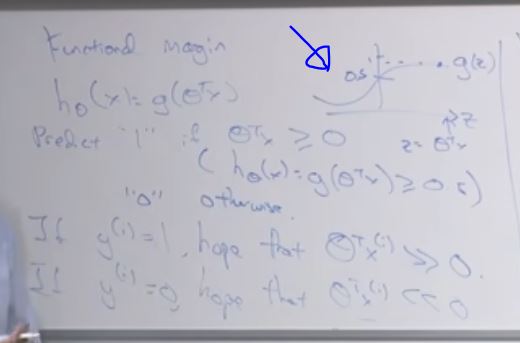 Functional margin
0.5 g(z)
h_θ(x) = g(θᵀx)
z
z = θᵀx
Predict "1" if θᵀx ≥ 0
(h_θ(x) = g(θᵀx) ≥ 0.5)
"0" otherwise.
If y⁽ⁱ⁾ = 1, hope that θᵀx⁽ⁱ⁾ >> 0.
If y⁽ⁱ⁾ = 0, hope that θᵀx⁽ⁱ⁾ << 0